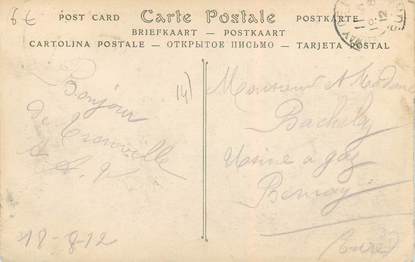 6€
POST CARD Carte Postale POSTKARTE
BRIEFKAART — POSTKAART
CARTOLINA POSTALE — ОТКРЫТОЕ ПИСЬМО — TARJETA POSTAL
14)
Bonjour
de Trouville
18-8-12
Monsieur & Madame
Usine a gaz
Bernay
(Eure)